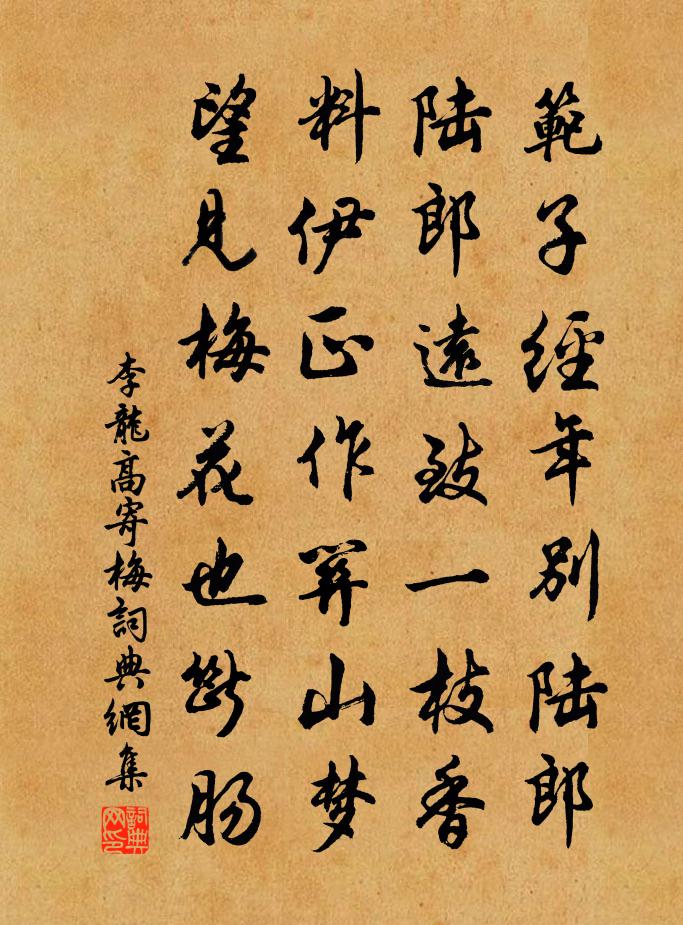 範子經年別陸郎
陸郎遠致一枝香
料伊正作關山梦
望見梅花也斷腸
李龍高寄梅詞典網集
詞典网印